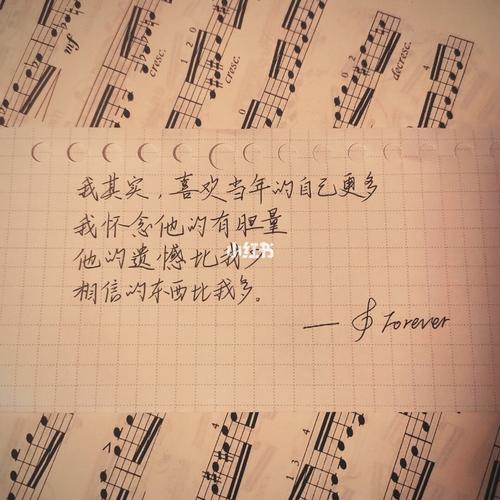 cresc.
cresc.
decresc.
我其实，喜欢当年的自己更多
我怀念他的有胆量
小红书
他的遗憾比我少
相信的东西比我多。
— Forever